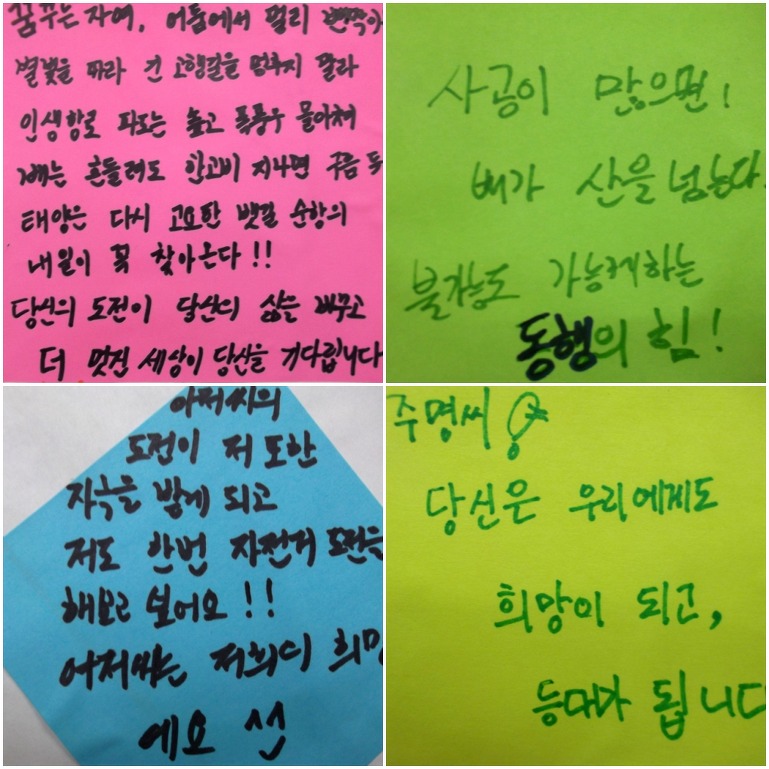 꿈꾸는 자여, 어둠에서 멀리 반짝이
별빛을 따라 긴 고행길을 멈추지 말라
인생항로 파도는 높고 폭풍우 몰아쳐
배는 흔들려도 한고비 지나면 구름 뒤
태양은 다시 고요한 뱃길 순항의
내일이 꼭 찾아온다!!
당신의 도전이 당신의 삶을 바꾸고
더 멋진 세상이 당신을 기다립니다
사공이 많으면!
배가 산을 넘는다.
불가능도 가능케하는
동행의 힘!
아저씨의
도전이 저 또한
자극을 받게 되고
저도 한번 자전거 도전을
해보려 보어요!!
아저씨는 저희의 희망
예요
주명씨
당신은 우리에게도
희망이 되고,
등대가 됩니다